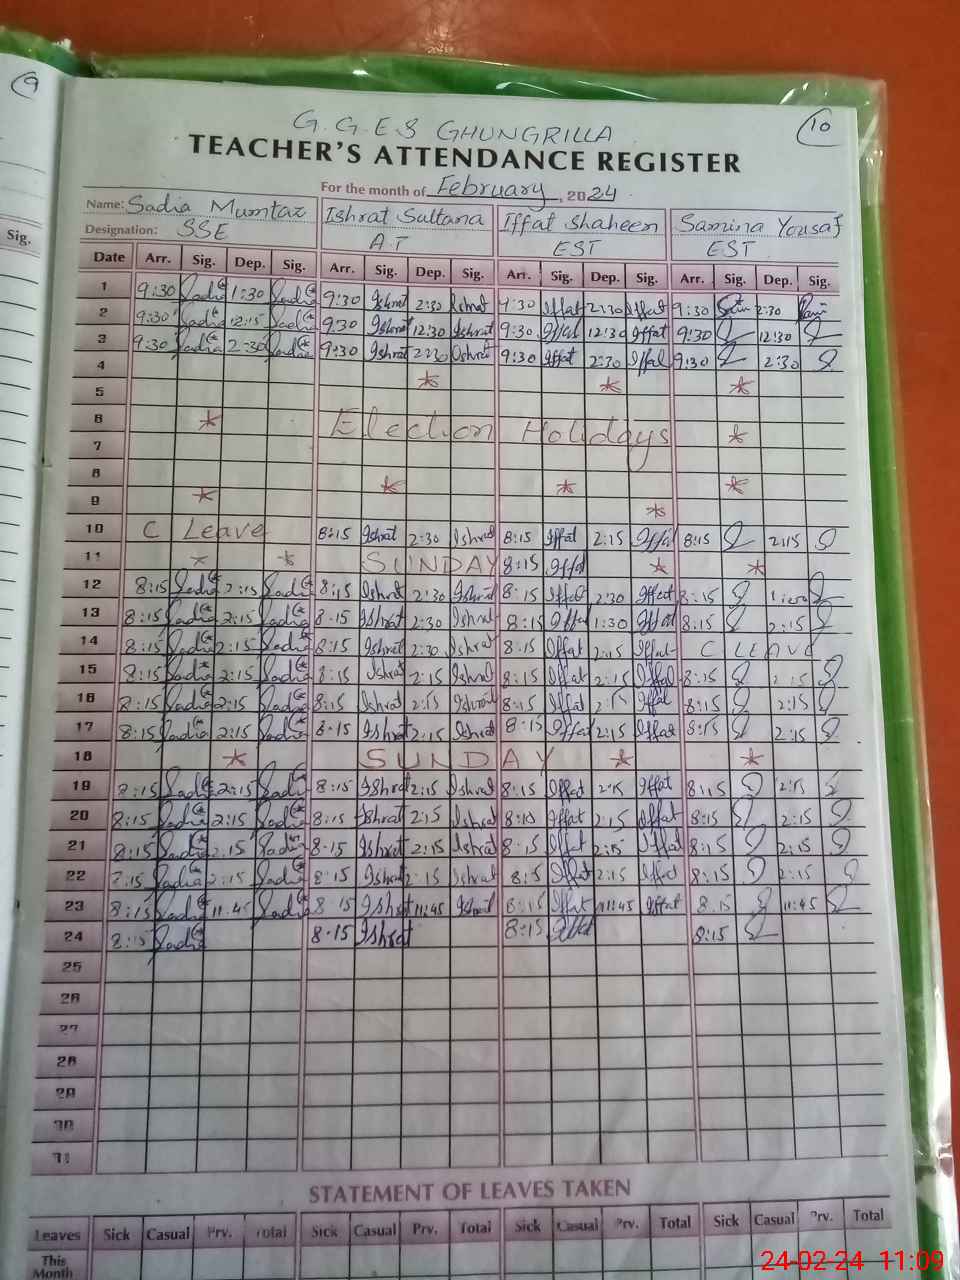 9
10
G.G.E.S GHUNGRILLA
TEACHER'S ATTENDANCE REGISTER
For the month of February, 2024
Name: Sadia Mumtaz Ishrat Sultana Iffat Shaheen Samina Yousaf
Designation: SSE A.T EST EST
Sig.
Date Arr. Sig. Dep. Sig. Arr. Sig. Dep. Sig. Arr. Sig. Dep. Sig. Arr. Sig. Dep. Sig.
1 9:30 Sadia 1:30 Sadia 9:30 Ishrat 2:30 Ishrat 9:30 Iffat 2:30 Iffat 9:30 2:30
2 9:30 Sadia 12:15 Sadia 9:30 Ishrat 12:30 Ishrat 9:30 Iffat 12:30 Iffat 9:30 12:30
3 9:30 Sadia 2:30 Sadia 9:30 Ishrat 2:30 Ishrat 9:30 Iffat 2:30 Iffat 9:30 2:30
4
5
6 Election Holidays
7
8
9
10 C Leave 8:15 Ishrat 2:30 Ishrat 8:15 Iffat 2:15 Iffat 8:15 2:15
11 SUNDAY 8:15 Iffat
12 8:15 Sadia 2:15 Sadia 8:15 Ishrat 2:30 Ishrat 8:15 Iffat 2:30 Iffat 8:15
13 8:15 Sadia 2:15 Sadia 8:15 Ishrat 2:30 Ishrat 8:15 Iffat 1:30 Iffat 8:15 2:15
14 8:15 Sadia 2:15 Sadia 8:15 Ishrat 2:30 Ishrat 8:15 Iffat 2:15 Iffat C LEAVE
15 8:15 Sadia 2:15 Sadia 8:15 Ishrat 2:15 Ishrat 8:15 Iffat 2:15 Iffat 8:15 2:15
16 8:15 Sadia 2:15 Sadia 8:15 Ishrat 2:15 Ishrat 8:15 Iffat 2:15 Iffat 8:15 2:15
17 8:15 Sadia 2:15 Sadia 8:15 Ishrat 2:15 Ishrat 8:15 Iffat 2:15 Iffat 8:15 2:15
18 SUNDAY
19 8:15 Sadia 2:15 Sadia 8:15 Ishrat 2:15 Ishrat 8:15 Iffat 2:15 Iffat 8:15 2:15
20 8:15 Sadia 2:15 Sadia 8:15 Ishrat 2:15 Ishrat 8:10 Iffat 2:15 Iffat 8:15 2:15
21 8:15 Sadia 2:15 Sadia 8:15 Ishrat 2:15 Ishrat 8:15 Iffat 2:15 Iffat 8:15 2:15
22 Sadia 2:15 Sadia 8:15 Ishrat 2:15 Ishrat 8:15 Iffat 2:15 Iffat 8:15 2:15
23 8:15 Sadia 11:45 Sadia 8:15 Ishrat 11:45 Ishrat 8:15 Iffat 11:45 Iffat 8:15 11:45
24 8:15 Sadia 8:15 Ishrat 8:15 Iffat 8:15
25
26
27
28
29
30
31
STATEMENT OF LEAVES TAKEN
Leaves Sick Casual Prv. Total Sick Casual Prv. Total Sick Casual Prv. Total Sick Casual Prv. Total
This
Month
24-02-24 11:09